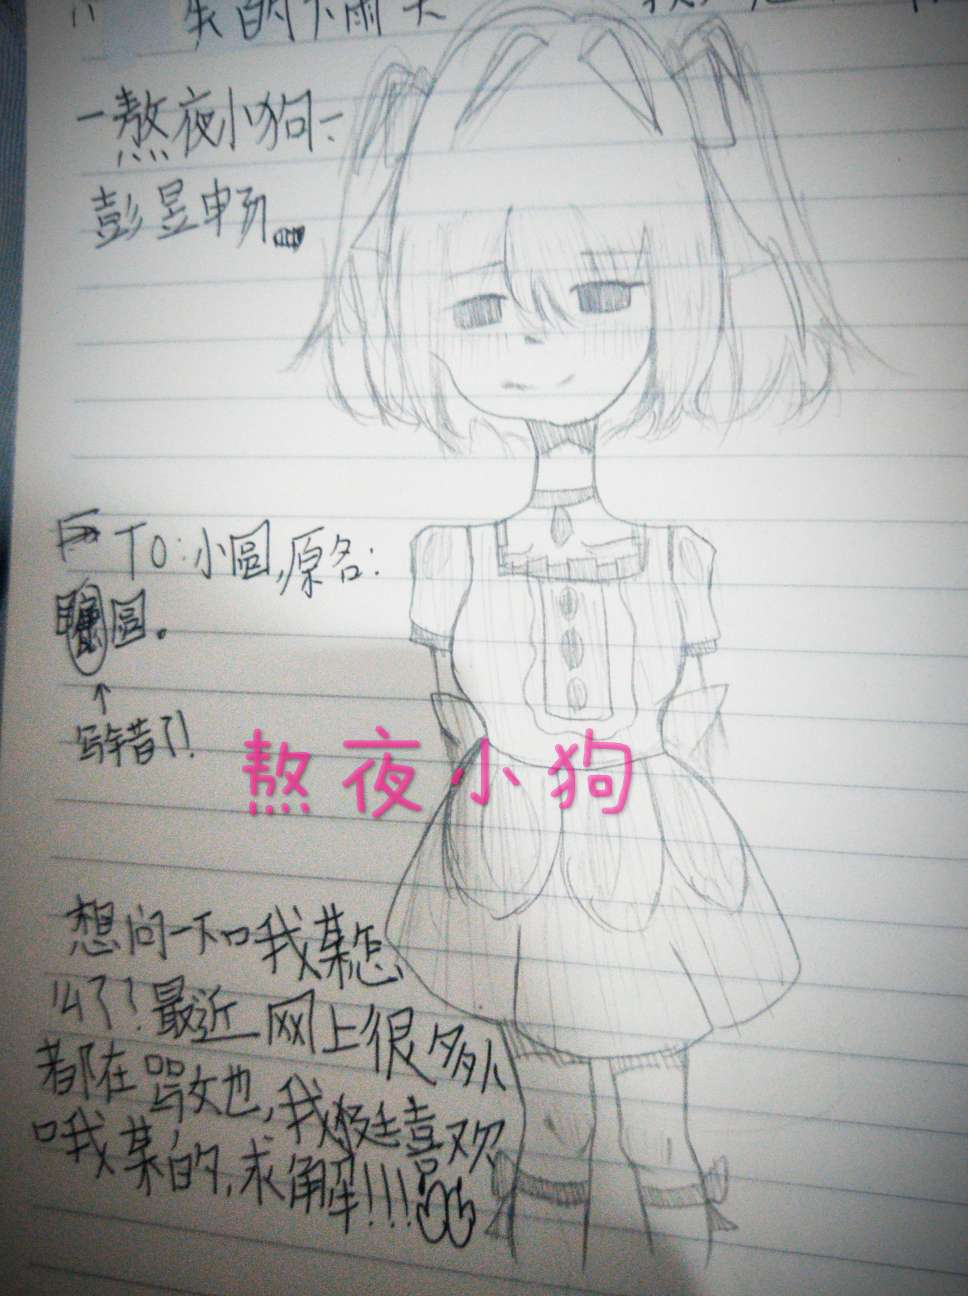 我的下雨天
-熬夜小狗-
彭昱畅
TO:小圖,原名:
圖。
写错了!
熬夜小狗
想问一下哦某怎
么了?最近网上很多人
都在骂她,我挺喜欢
哦某的,求解!!!